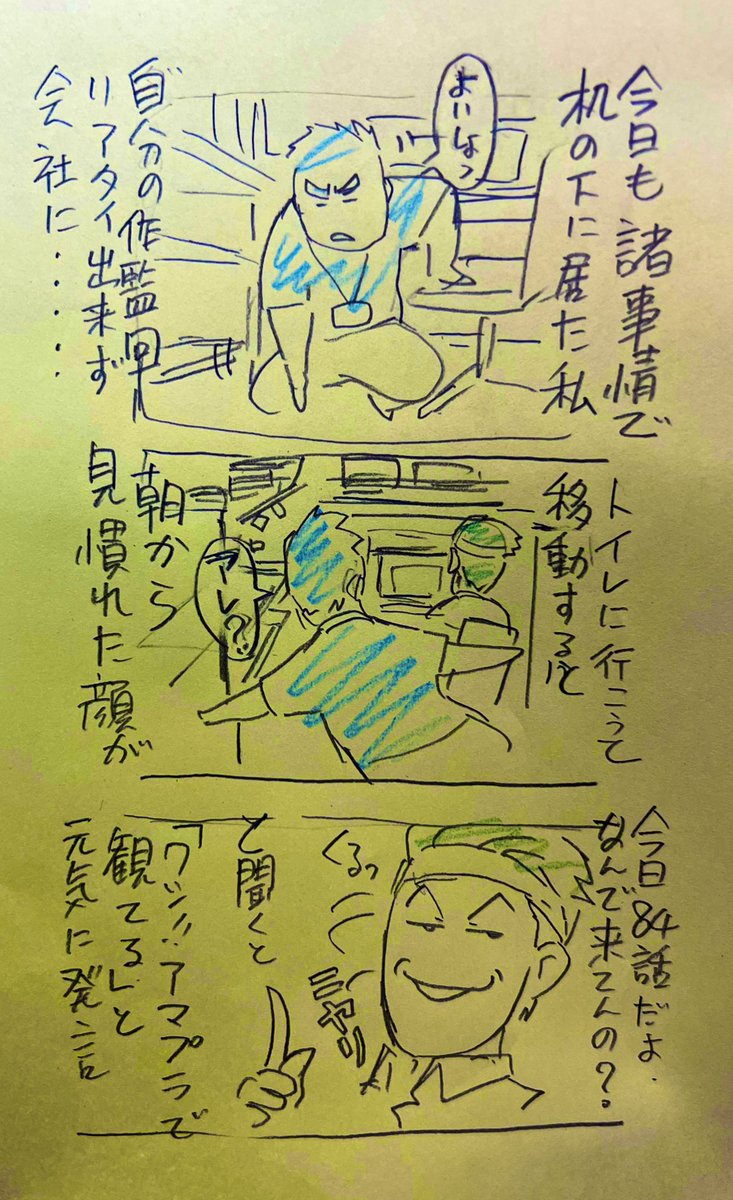 今日も諸事情で
机の下に居た私
よいしょっ
自分の作監回
リアタイ出来ず
会社に・・・・・
トイレに行こうて
移動すると
アレ?
朝から
見慣れた顔が
今日84話だよ.
なんで来てんの?。
くるっ
ニヤリ
と聞くと
「ワシ!!アマプラで
観てる」と
元気に発言